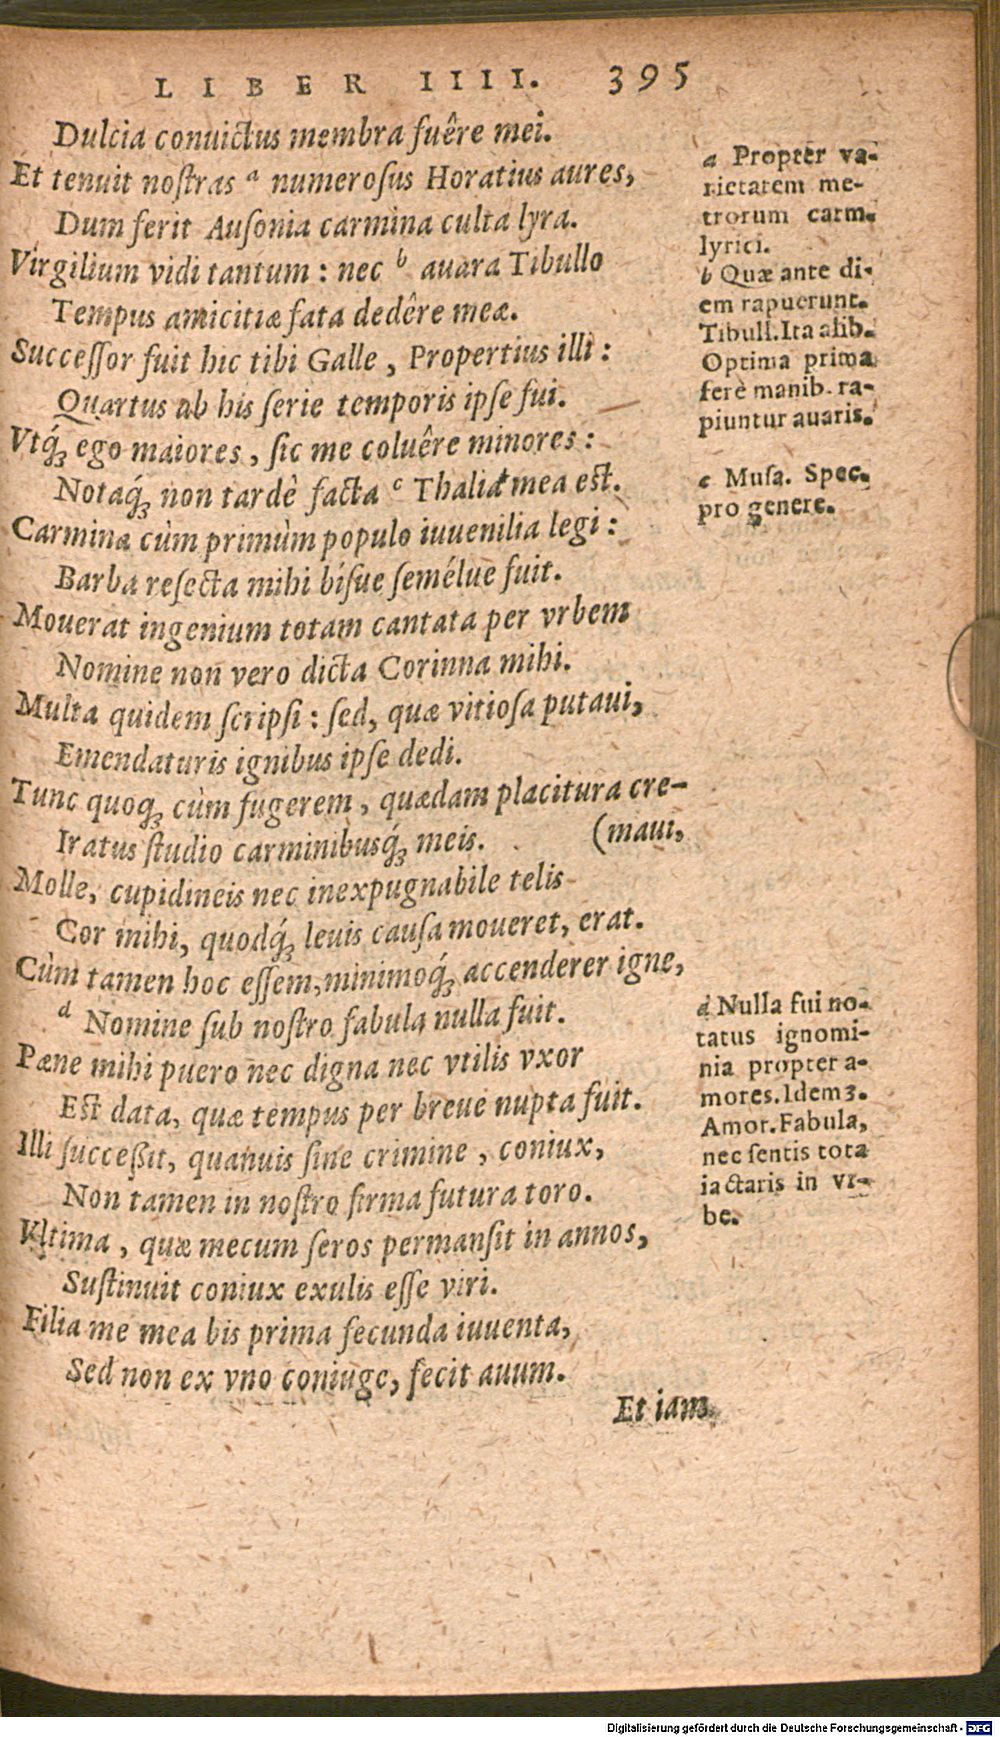 LIBER IIII. 395
Dulcia conuictus membra fuêre mei.
Et tenuit noſtras a numeroſus Horatius aures,
Dum ferit Auſonia carmina culta lyra.
Virgilium vidi tantum : nec b auara Tibullo
Tempus amicitiæ fata dedêre meæ.
Succeſſor fuit hic tibi Galle, Propertius illi :
Quartus ab his ſerie temporis ipſe fui.
Vtq́ꝫ ego maiores, ſic me coluêre minores :
Notaq́ꝫ non tardè facta c Thalia mea eſt.
Carmina cùm primùm populo iuuenilia legi :
Barba reſecta mihi bíſue ſemélue fuit.
Mouerat ingenium totam cantata per vrbem
Nomine non vero dicta Corinna mihi.
Multa quidem ſcripſi : ſed, quæ vitioſa putaui,
Emendaturis ignibus ipſe dedi.
Tunc quoqꝫ cùm fugerem, quædam placitura cre-
Iratus ſtudio carminibusq́ꝫ meis. (maui,
Molle, cupidineis nec inexpugnabile telis
Cor mihi, quodq́ꝫ leuis cauſa moueret, erat.
Cùm tamen hoc eſſem, minimoq́ꝫ accenderer igne,
d Nomine ſub noſtro fabula nulla fuit.
Pæne mihi puero nec digna nec vtilis vxor
Eſt data, quæ tempus per breue nupta fuit.
Illi ſucceßit, quanuis ſine crimine, coniux,
Non tamen in noſtro firma futura toro.
Vltima, quæ mecum ſeros permanſit in annos,
Suſtinuit coniux exulis eſſe viri.
Filia me mea bis prima fecunda iuuenta,
Sed non ex vno coniuge, fecit auum.
Et iam
a Propter va-
rietatem me-
trorum carm.
lyrici.
b Quæ ante di-
em rapuerunt.
Tibull. Ita alib.
Optima prima
ferè manib. ra-
piuntur auaris.
c Muſa. Spec.
pro genere.
d Nulla fui no-
tatus ignomi-
nia propter a-
mores. Idem 3.
Amor. Fabula,
nec ſentis tota
iactaris in vr-
be.
Digitalisierung gefördert durch die Deutsche Forschungsgemeinschaft - DFG